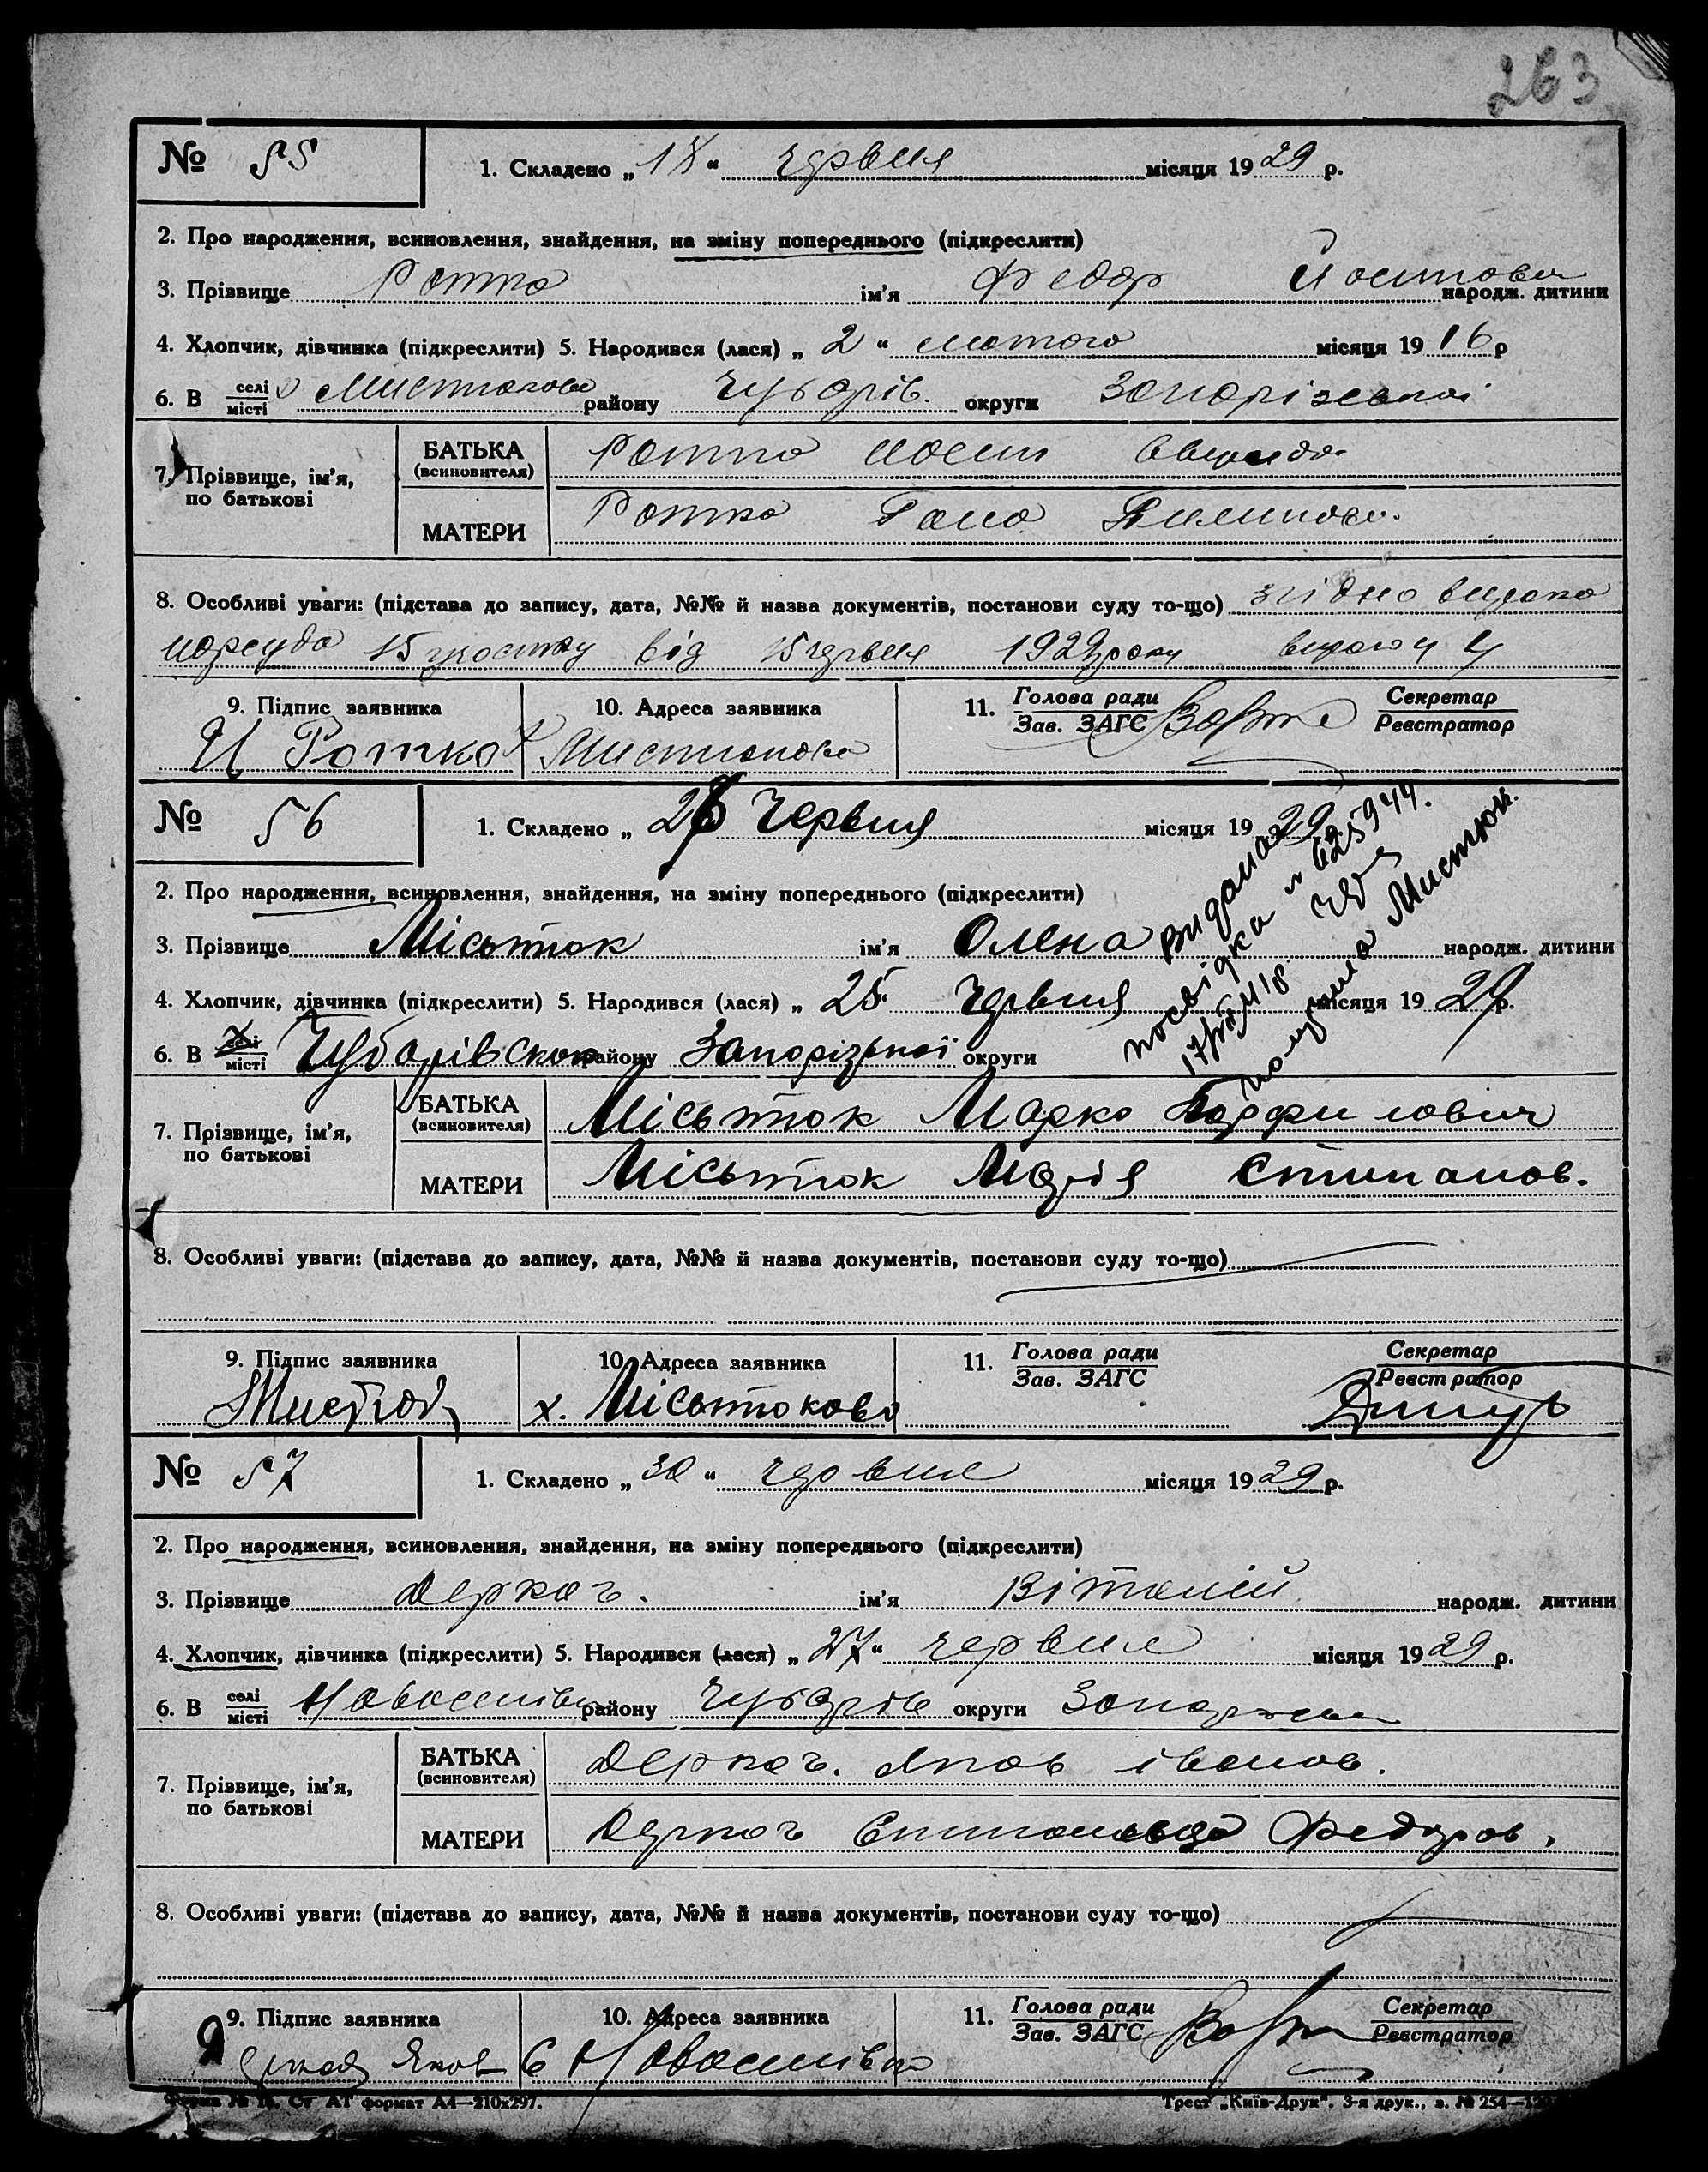 263
№ 55 1. Складено „18“ червня місяця 1929 р.
2. Про народження, всиновлення, знайдення, на зміну попереднього (підкреслити)
3. Прізвище Ротко ім'я Федор народж. дитини
4. Хлопчик, дівчинка (підкреслити) 5. Народився (лася) „2“ лютого місяця 1916 р
6. В селі/місті району Чубарів. округи Запорізської
7. Прізвище, ім'я, по батькові
БАТЬКА (всиновителя) Ротко
МАТЕРИ Ротко Пилипов.
8. Особливі уваги: (підстава до запису, дата, №№ й назва документів, постанови суду то-що) згідно вирока
нарсуда 15 участку від 15 червня 1929 року
9. Підпис заявника 10. Адреса заявника 11. Голова ради/Зав. ЗАГС Секретар/Реєстратор
И Ротко
№ 56 1. Складено „26 Червня місяця 1929
2. Про народження, всиновлення, знайдення, на зміну попереднього (підкреслити)
3. Прізвище Місьтюк ім'я Олена народж. дитини
4. Хлопчик, дівчинка (підкреслити) 5. Народився (лася) „25“ Червня місяця 1929 р.
6. В селі/місті Чубарівском району Запорізької округи
видана
посвідка № 625944.
получила Мистюк.
7. Прізвище, ім'я, по батькові
БАТЬКА (всиновителя) Місьтюк Марко Парфилович
МАТЕРИ Місьтюк Марія Степанов.
8. Особливі уваги: (підстава до запису, дата, №№ й назва документів, постанови суду то-що)
9. Підпис заявника 10. Адреса заявника 11. Голова ради/Зав. ЗАГС Секретар/Реєстратор
х. Місьтюково
№ 57 1. Складено „30“ червня місяця 1929 р.
2. Про народження, всиновлення, знайдення, на зміну попереднього (підкреслити)
3. Прізвище Деркач. ім'я Віталій народж. дитини
4. Хлопчик, дівчинка (підкреслити) 5. Народився (лася) „27“ червня місяця 1929 р.
6. В селі/місті району Чубарів округи
7. Прізвище, ім'я, по батькові
БАТЬКА (всиновителя) Деркач. Яков Іванов.
МАТЕРИ Деркач Федоров.
8. Особливі уваги: (підстава до запису, дата, №№ й назва документів, постанови суду то-що)
9. Підпис заявника 10. Адреса заявника 11. Голова ради/Зав. ЗАГС Секретар/Реєстратор
Яков С
Форма № Ст АТ формат А4—210х297. Трест „Київ-Друк“. 3-я друк., з. № 254